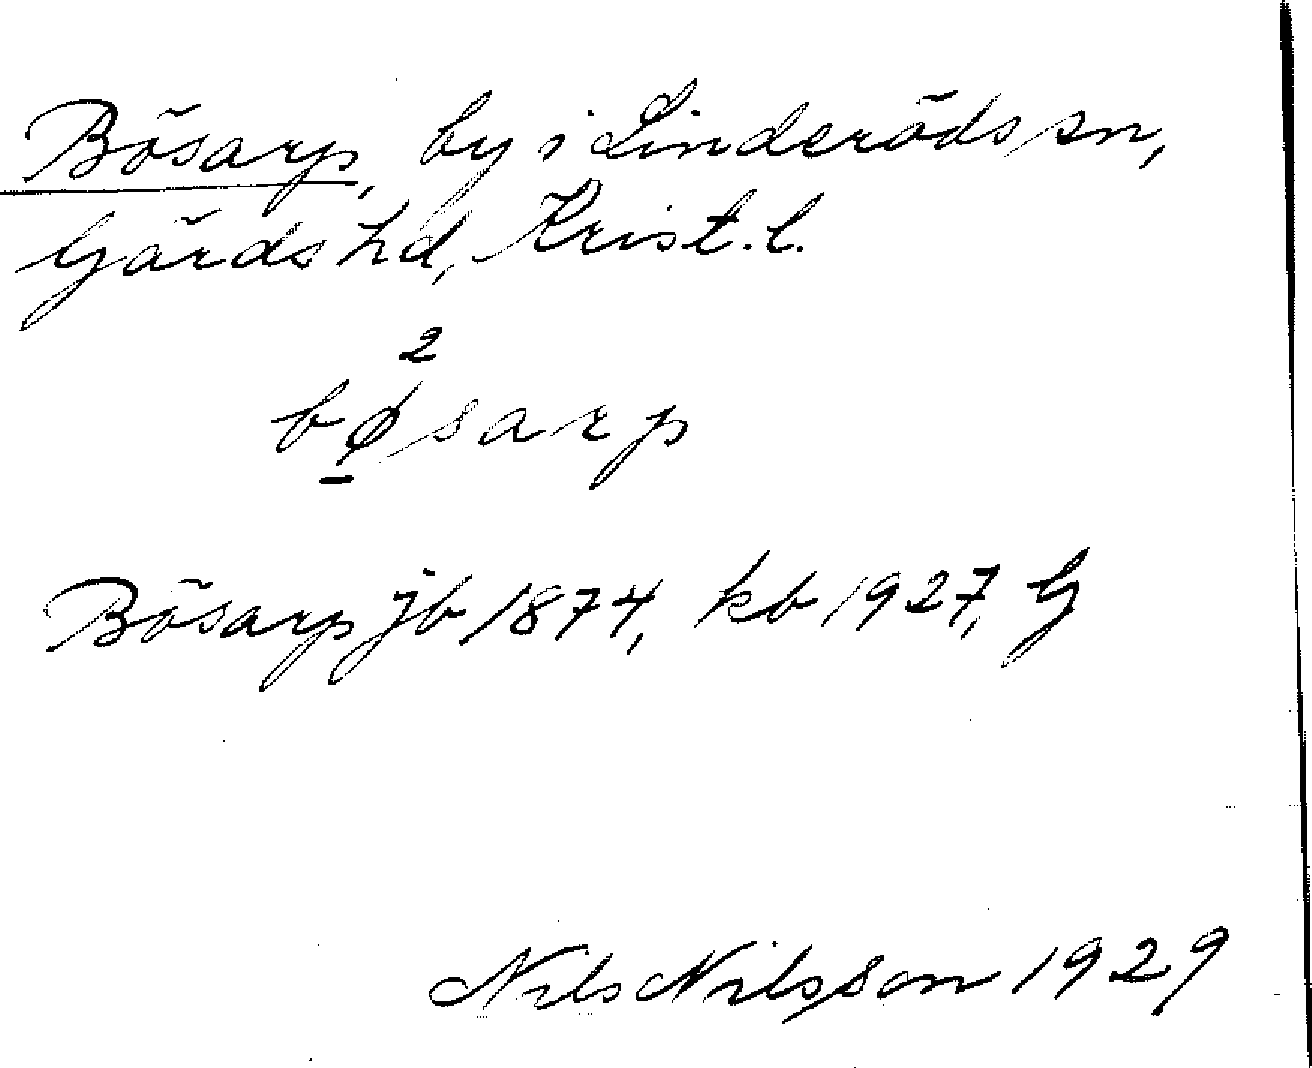 Bösarp, by i Linderöds sn,
Gärds hd, Krist. l.
2
bø̱sarp
Bösarp jb 1874, kb 1927, G
Nils Nilsson 1929